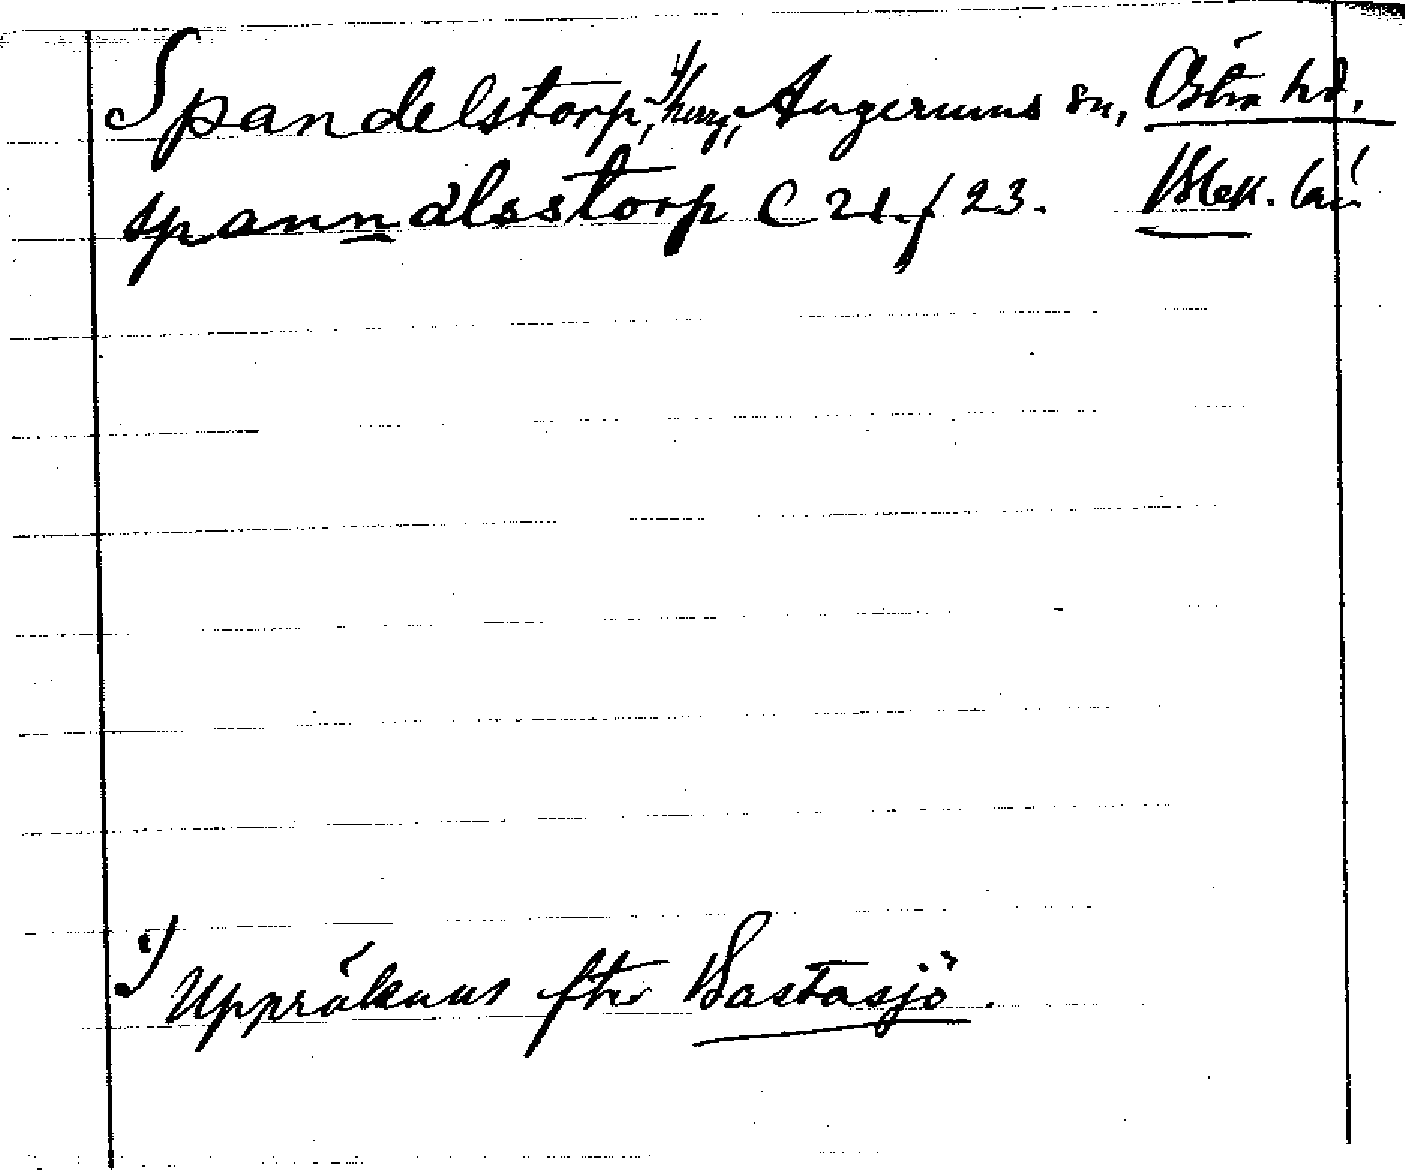 Spandelstorp, Augerums sn, Östra hd,
spannälsstorp C 21 f 23. Blek. län
Uppräknas fter Bastasjö.